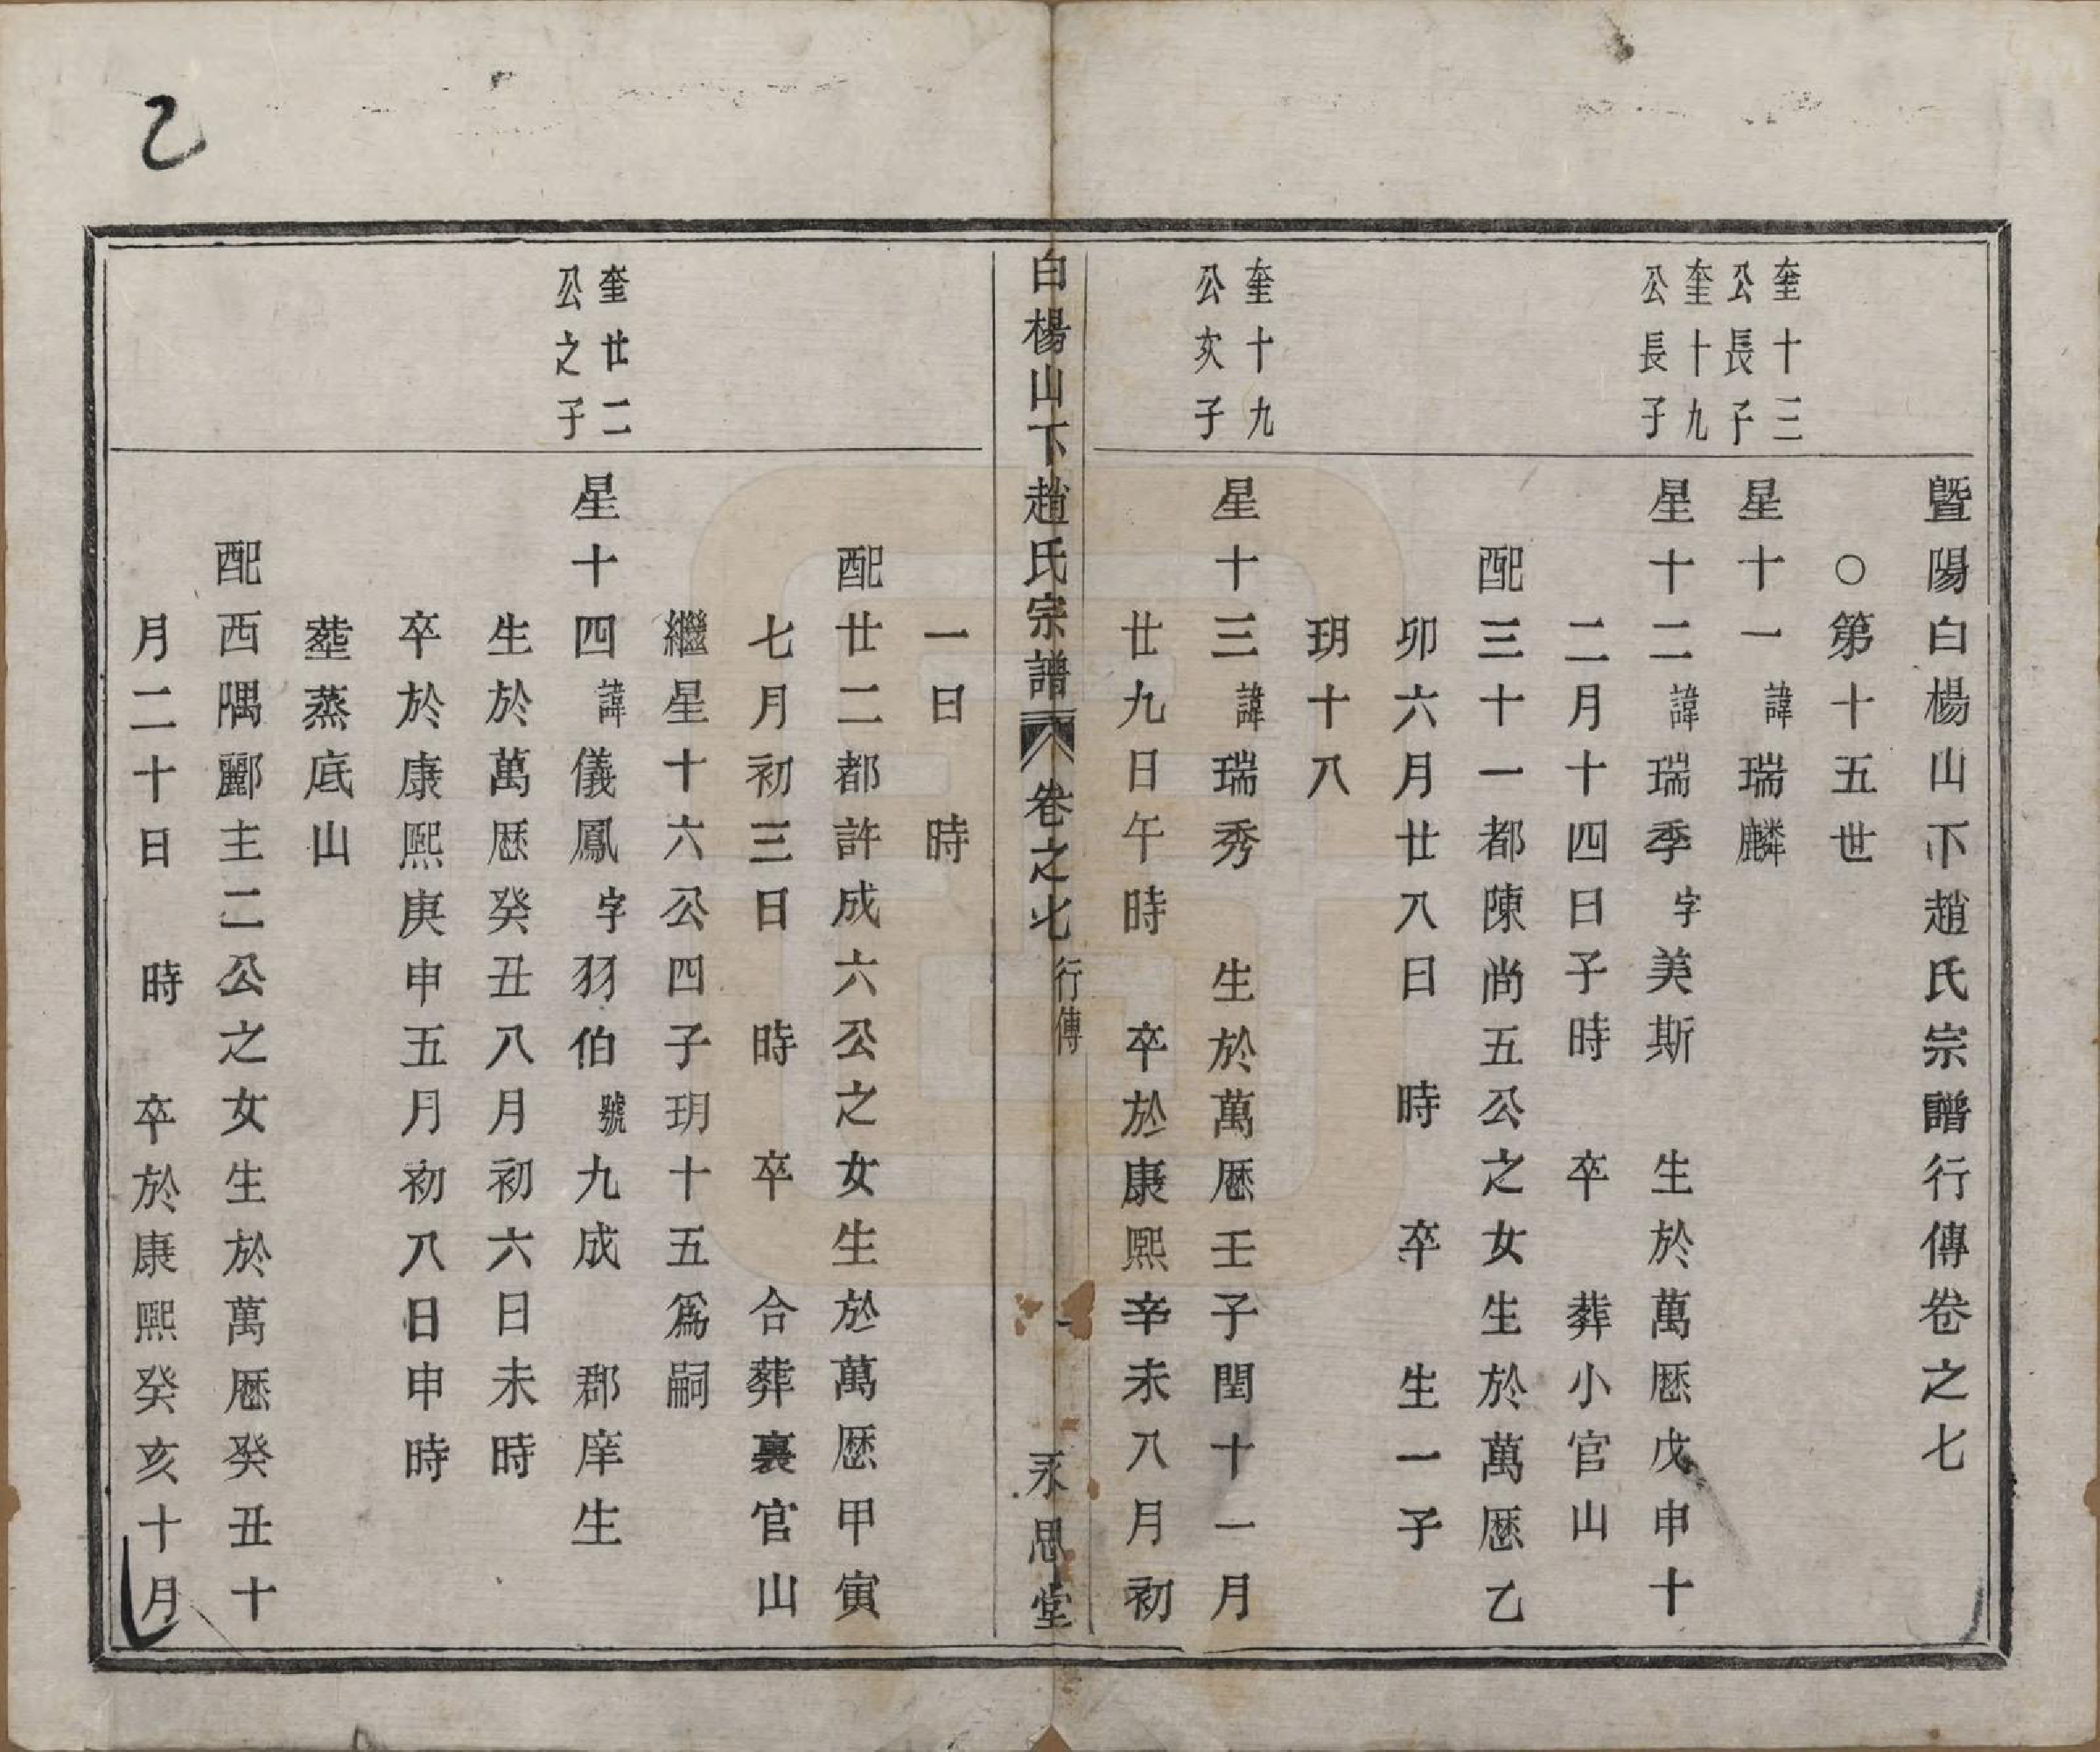 乙
暨陽白楊山下趙氏宗譜行傳卷之七
○第十五世
奎十三
公長子
星十一諱瑞麟
奎十九
公長子
星十二諱瑞季字美斯 生於萬厯戊申十
二月十四日子時 卒 葬小官山
配三十一都陳尚五公之女生於萬厯乙
卯六月廿八日 時 卒 生一子
玥十八
奎十九
公次子
星十三諱瑞秀 生於萬厯壬子閏十一月
廿九日午時 卒於康熙辛未八月初
白楊山下趙氏宗譜 卷之七 行傳 一 永思堂
一日 時
配廿二都許成六公之女生於萬厯甲寅
七月初三日 時 卒 合葬裏官山
繼星十六公四子玥十五爲嗣
奎廿二
公之子
星十四諱儀鳳字羽伯號九成 郡庠生
生於萬厯癸丑八月初六日未時
卒於康熙庚申五月初八日申時
塟蒸底山
配西隅酈主二公之女生於萬厯癸丑十
月二十日 時 卒於康熙癸亥十月